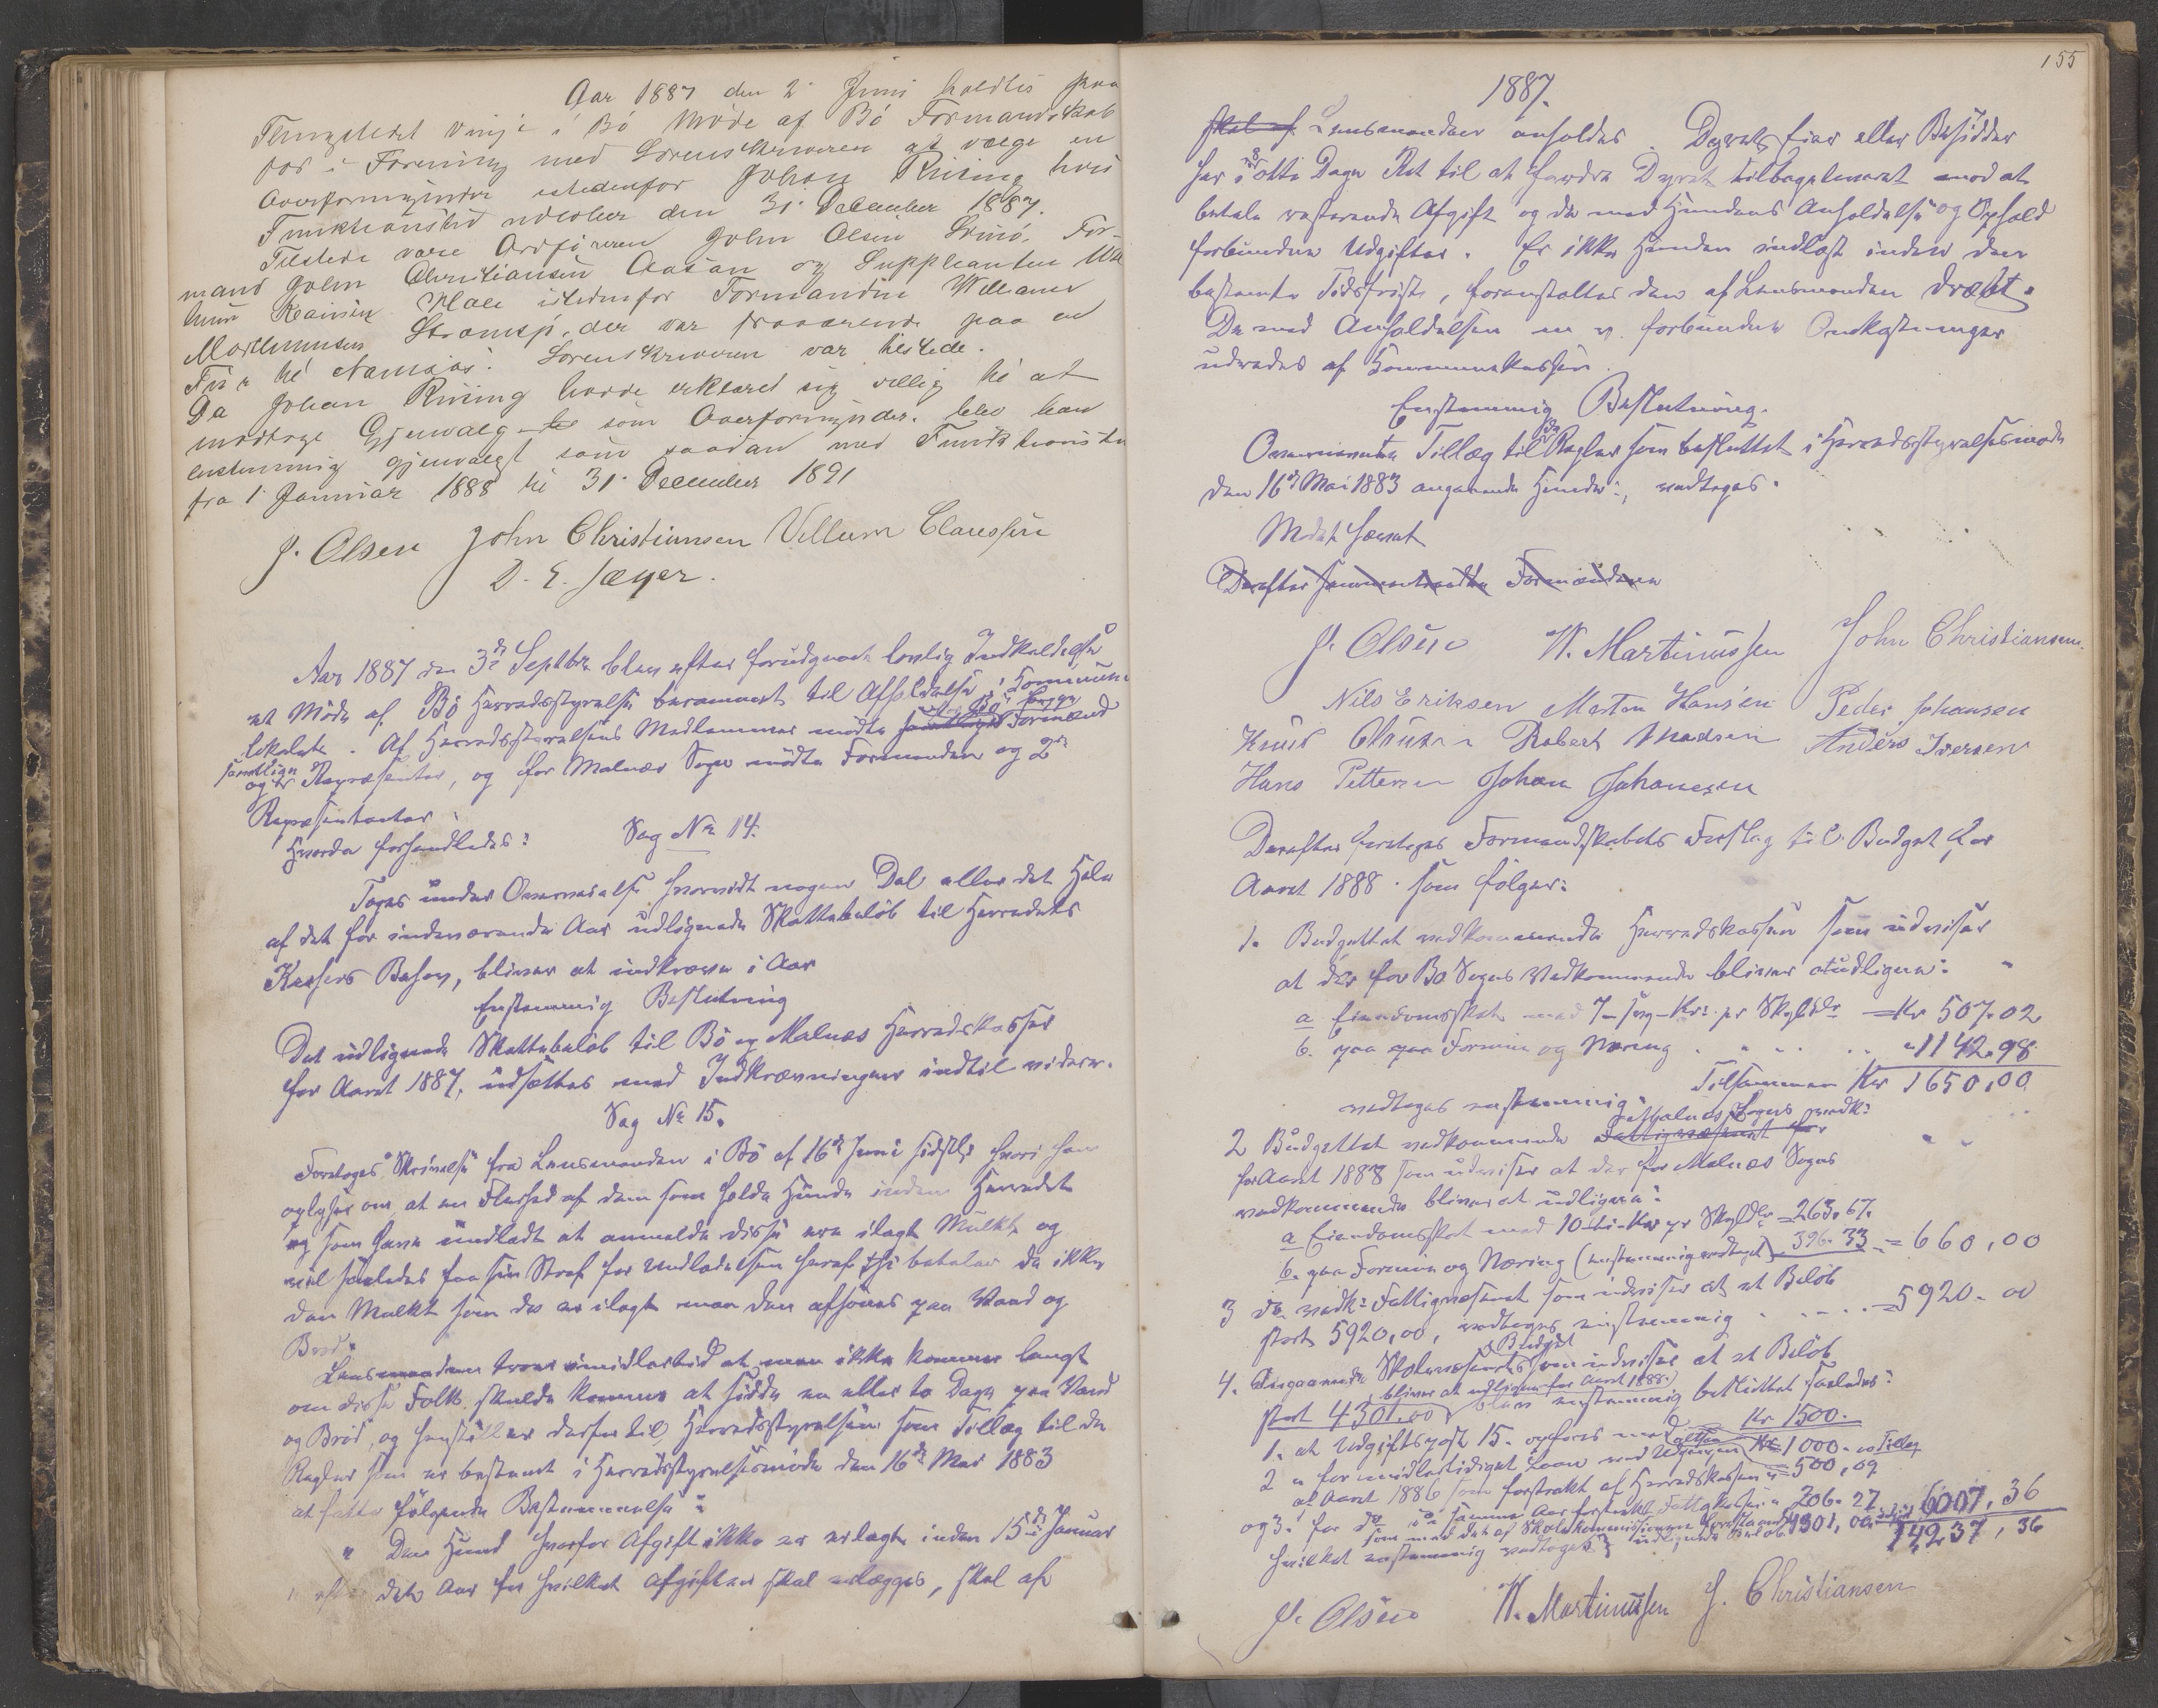 Aar 1887 den 2. Juni holdtes paa
Thingstedet Vinje i Bö Möde af Bö Formandskab
for i Forening med Sorenskriveren at vælge en
Overformynder istedenfor Johan Rising hvis
Funktionstid udlober den 31. December 1887.
Tilstede vare Ordföreren John Olsen For-
mand John Christiansen Aasan og Suppleanten Wil
istedenfor Formanden William
Martinussen der var fraværende paa en
til Namsos. Sorenskriveren var tilstede.
Da Johan Rising havde erklæret sig villig til at
modtage Gjenvalg som Overformynder. blev han
enstemmig gjenvalgt som saadan med Funktionstid
fra 1. Januar 1888 til 31. December 1891
J. Olsen John Christiansen Villum Claussen
D. E. Jæger.
Aar 1887 den 3de Septbr blev efter forudgaaet lovlig Indkaldelse
et Möde af Bö Herredsstyrelse berammet til Afholdelse i Kommune
lokalet. Af Herredsstyrelsens Medlemmer mödte for Bö Sogn samtlige Formænd
og Repræsentanter, og for Malnes Sogn mödte Formanden og 2de
Repræsentanter.
Hvorda forhandledes:
Sag No 14.
Toges under Overveielse hvorvidt nogen Del eller det Hele
af det for indeværende Aar udlignede Skattebelöb til Herredets
Kassers Behov, bliver at indkræve i Aar
Enstemmig Beslutning
Det udlignede Skattebelöb til Bö og Malnes Herredskasser
for Aaret 1887, udsættes med Indkrævningen indtil videre.
Sag No 15.
Foretoges Skrivelse fra Lensmanden i Bö af 16de Juni sidstl. hvori han
oplyser om, at en Flerhed af dem som holde Hunde inden Herredet
og som have undladt at anmelde disse ere ilagt Mulkt og
vil saaledes faa sin Straf for Undladelsen heraf thi betaler de ikke
den Mulkt som de er ilagt maa den afsones paa Vand og
Bröd.
Lensmanden troer imidlertid at man ikke kommer langt
om disse Folk skulde komme at sidde en eller to Dage paa Vand
og Bröd, og henstiller derfor til Herredsstyrelsen som Tillæg til de
Regler som er bestemt i Herredsstyrelsesmöde den 16de Mai 1883
at fatte fölgende Bestemmelse:
" Den Hund hvorfor Afgift ikke er erlagt inden 15de Januar
" efter det Aar for hvilket Afgiften skal erlægges, skal af
155
1887.
skal af Lensmanden anholdes. Dyrets Eier eller Besidder
har i 8 otte Dage Ret til at fordre Dyret tilbageleveret mod at
betale resterende Afgift og de med Hundens Anholdelse og Ophold
forbundne Udgifter. Er ikke Hunden indlöst inden den
bestemte Tidsfrist, foranstaltes den af Lensmanden dræbt.
De med Anholdelsen m. v. forbundne Omkostninger
udredes af Kommunekassen.
Enstemmig Beslutning.
Ovennævnte Tillæg til de Regler som besluttet i Herredsstyrelsesmöde
den 16de Mai 1883 angaaende Hunde, vedtoges.
Mödet hævet
Derefter sammentraadte Formændene
J. Olsen W. Martinussen John Christiansen.
Nils Eriksen Morten Hansen Peder Johansen
Knud Robert Madsen Anders Iversen
Hans Pettersen Johan Johanesen
Derefter foretoges Formandskabets Forslag til Budget for
Aaret 1888 som fölger:
1. Budgettet vedkommende Herredskassen som udviser
at der for Bö Sogns Vedkommende bliver at udligne:
a Eiendomsskat med 7 - syv - Kr. pr Skylddr = Kr 507.02
b. paa paa Formue og Næring " 1142.98
Tilsammen Kr 1650,00
vedtoges enstemmig.
2 Budgettet vedkommende Fattigvæsenet for Malnes Sogns vedk:
for Aaret 1888 som udviser at der for Malnes Sogns
vedkommende bliver at udligne:
a Eiendomsskat med 10 - ti - Kr pr Skylddr = 263.67.
b. paa Formue og Næring (enstemmig vedtaget) 396.33 = 660,00
3 do vedk: Fattigvæsenet som udviser at et Belöb
stort 5920,00, vedtoges enstemmig = 5920.00
4. Angaaende Skolevæsenets Budget som udviser at et Belöb
stort 4301,00 bliver at udligne for Aaret 1888. blev enstemmig besluttet saaledes:
1. at Udgiftspost 15. opföres med Kr 1500.
altsaa Kr 1000.00 Tillæg
2 " for midlertidigt Laan ved Udgangen
af Aaret 1886 som forstrakt af Herredskassen " 500,09
og 3. for do i samme Aar forstrakt Fattigkassen " 206.27
som med det af Skolekommissionen udlignede Belöb 4301,00 6007,36
hvilket enstemmig vedtoges 14237,36
J. Olsen W. Martinussen J. Christiansen